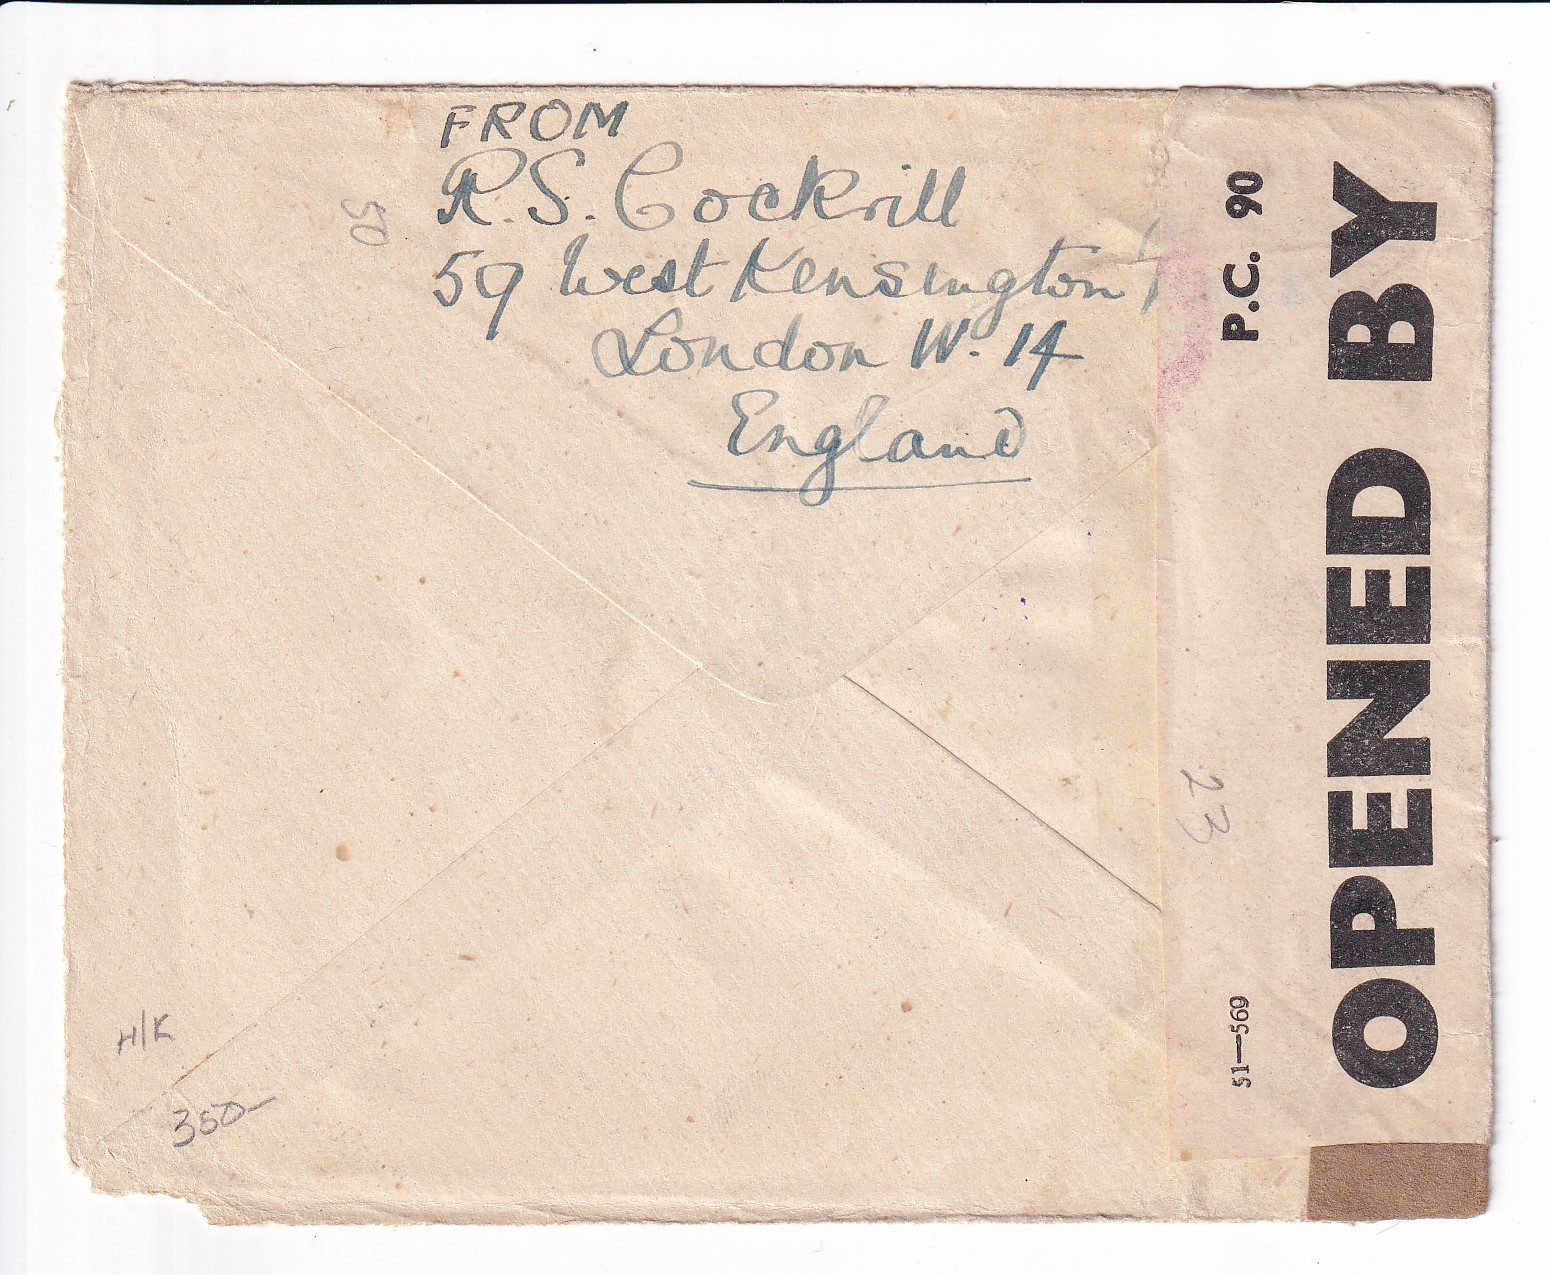 FROM
R.S. Cockrill
59 West Kensington
London W.14
England
50
P.C. 90
OPENED BY
23
51—569
H/K
350-